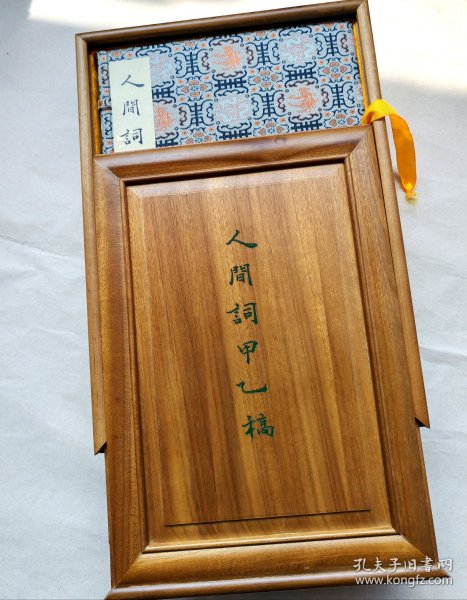 人間詞
人間詞甲乙稿
孔夫子旧书网
www.kongfz.com